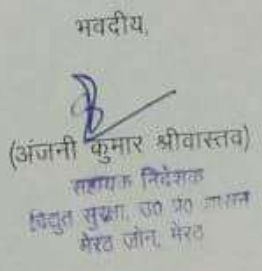 भवदीय,
(अंजनी कुमार श्रीवास्तव)
सहायक निदेशक
विद्युत सुरक्षा, उ0 प्र0 शासन
मेरठ जोन, मेरठ